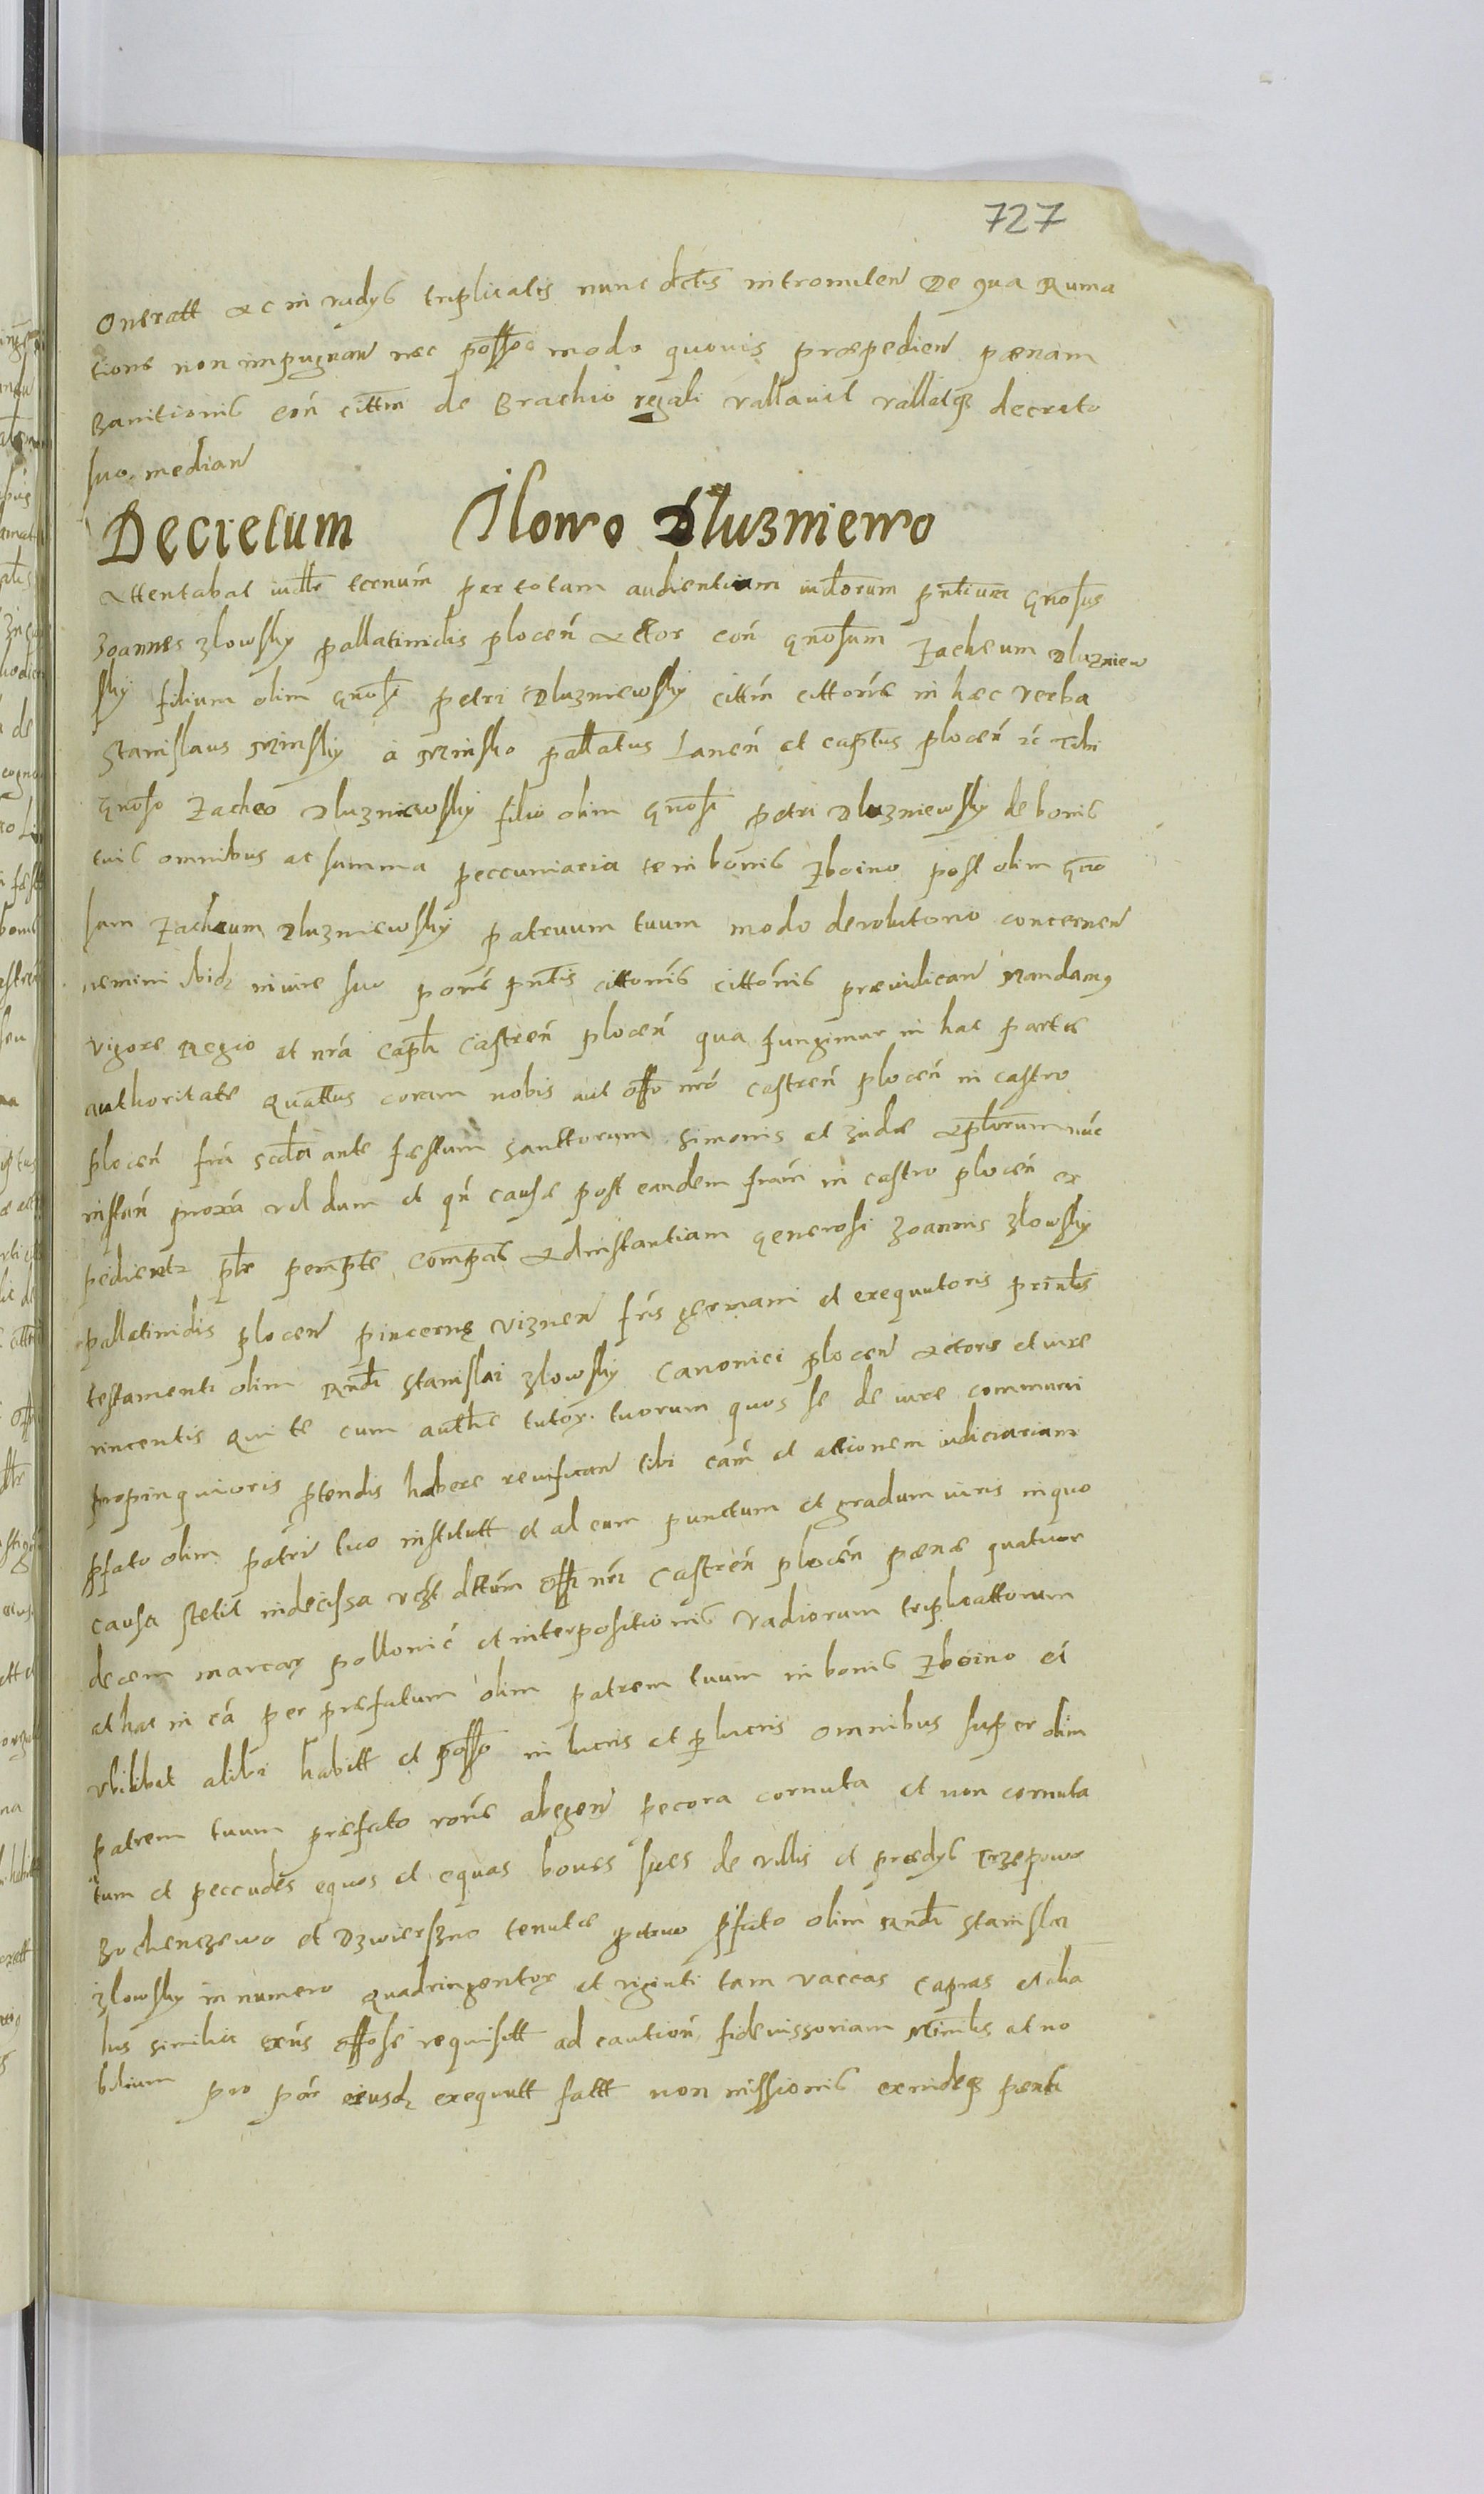 727
Oneratt ac in vadys triplicatis nunc dctis intromitten De qua Ruma
tione non impugnan nec possoe modo quovis præpedien pœnam
Banitionis con cittm de Brachio regali vallavit vallatq decreto
suo median
Decretum Ilowo Dluzniewo
Attentabat iudlr ternum per totam audientiam iudiorum pntium gnosus
Joannes Ilowsky pallatinidis plocen Actor con gnosum Zacheum Dluzniew
sky filium olim gnosi petri Dluzniewsky cittm cittone in hæc verba
Stanislaus Minsky a Minsko pallatus Lanen et captus plocen rc Tibi
Gnoso Zacheo Dluzniewsky filio olim gnosi petri Dluzniewsky de bonis
tuis omnibus ac summa peccuniaria te in bonis Zboino post olim gno
sum Zacheum Dluzniewsky patruum tuum modo devolutorio concernen
nemini ibidz in iure suo pone pntis cittonis cittonis præiudican Mandamq
vigore Regio et nra capli castren plocen qua fungimur in hac parte
authoritate quattus coram nobis aut offo nro castren plocen in castro
plocen fria scda ante festum sanctorum Simonis et Judæ Aplorum nuc
instan proxa vel dum et qn causæ post eandem fram in castro plocen ex
pedientr plr pempte compas Ad instantiam generosi Joannis Ilowsky
pallatinidis plocen pincernę viznen fris germani et exequutoris prinlis
testamenti olim Rndi Stanislai Ilowsky Canonici plocen Actoris et iure
vincentis qui te cum authe tutor tuorum quos se de iure communi
propinquioris ptendis habere revisican tibi cam et actionem iudiciariam
pfato olim patri tuo institutt et ad eum punctum et gradum iuris in quo
causa stetit indecissa vgt dttum offi nri castren plocen pœnæ quatuor
decem marcar pollonic et interpositionis vadiorum triplicattorum
at hac in ea per præfatum olim patrem tuum in bonis Zboino et
ubilibet alibi habitt et posso in lucris et plucris omnibus super olim
patrem tuum præfato rone abegen pecora cornuta et non cornuta
tum et peccudes equos et equas boves sues de villis et prædys Trzepowo
Bochenzewo et Dzwierszno tenutæ petruo pfato olim Rndi Stanislai
Ilowsky in numero quadringentor et viginti tam vaccas capras et alia
hus similia exns offose requisitt ad caution fideiussoriam Minilis at no
bilium pro par eiusdz exequutt fatt non missionis exindeq penti